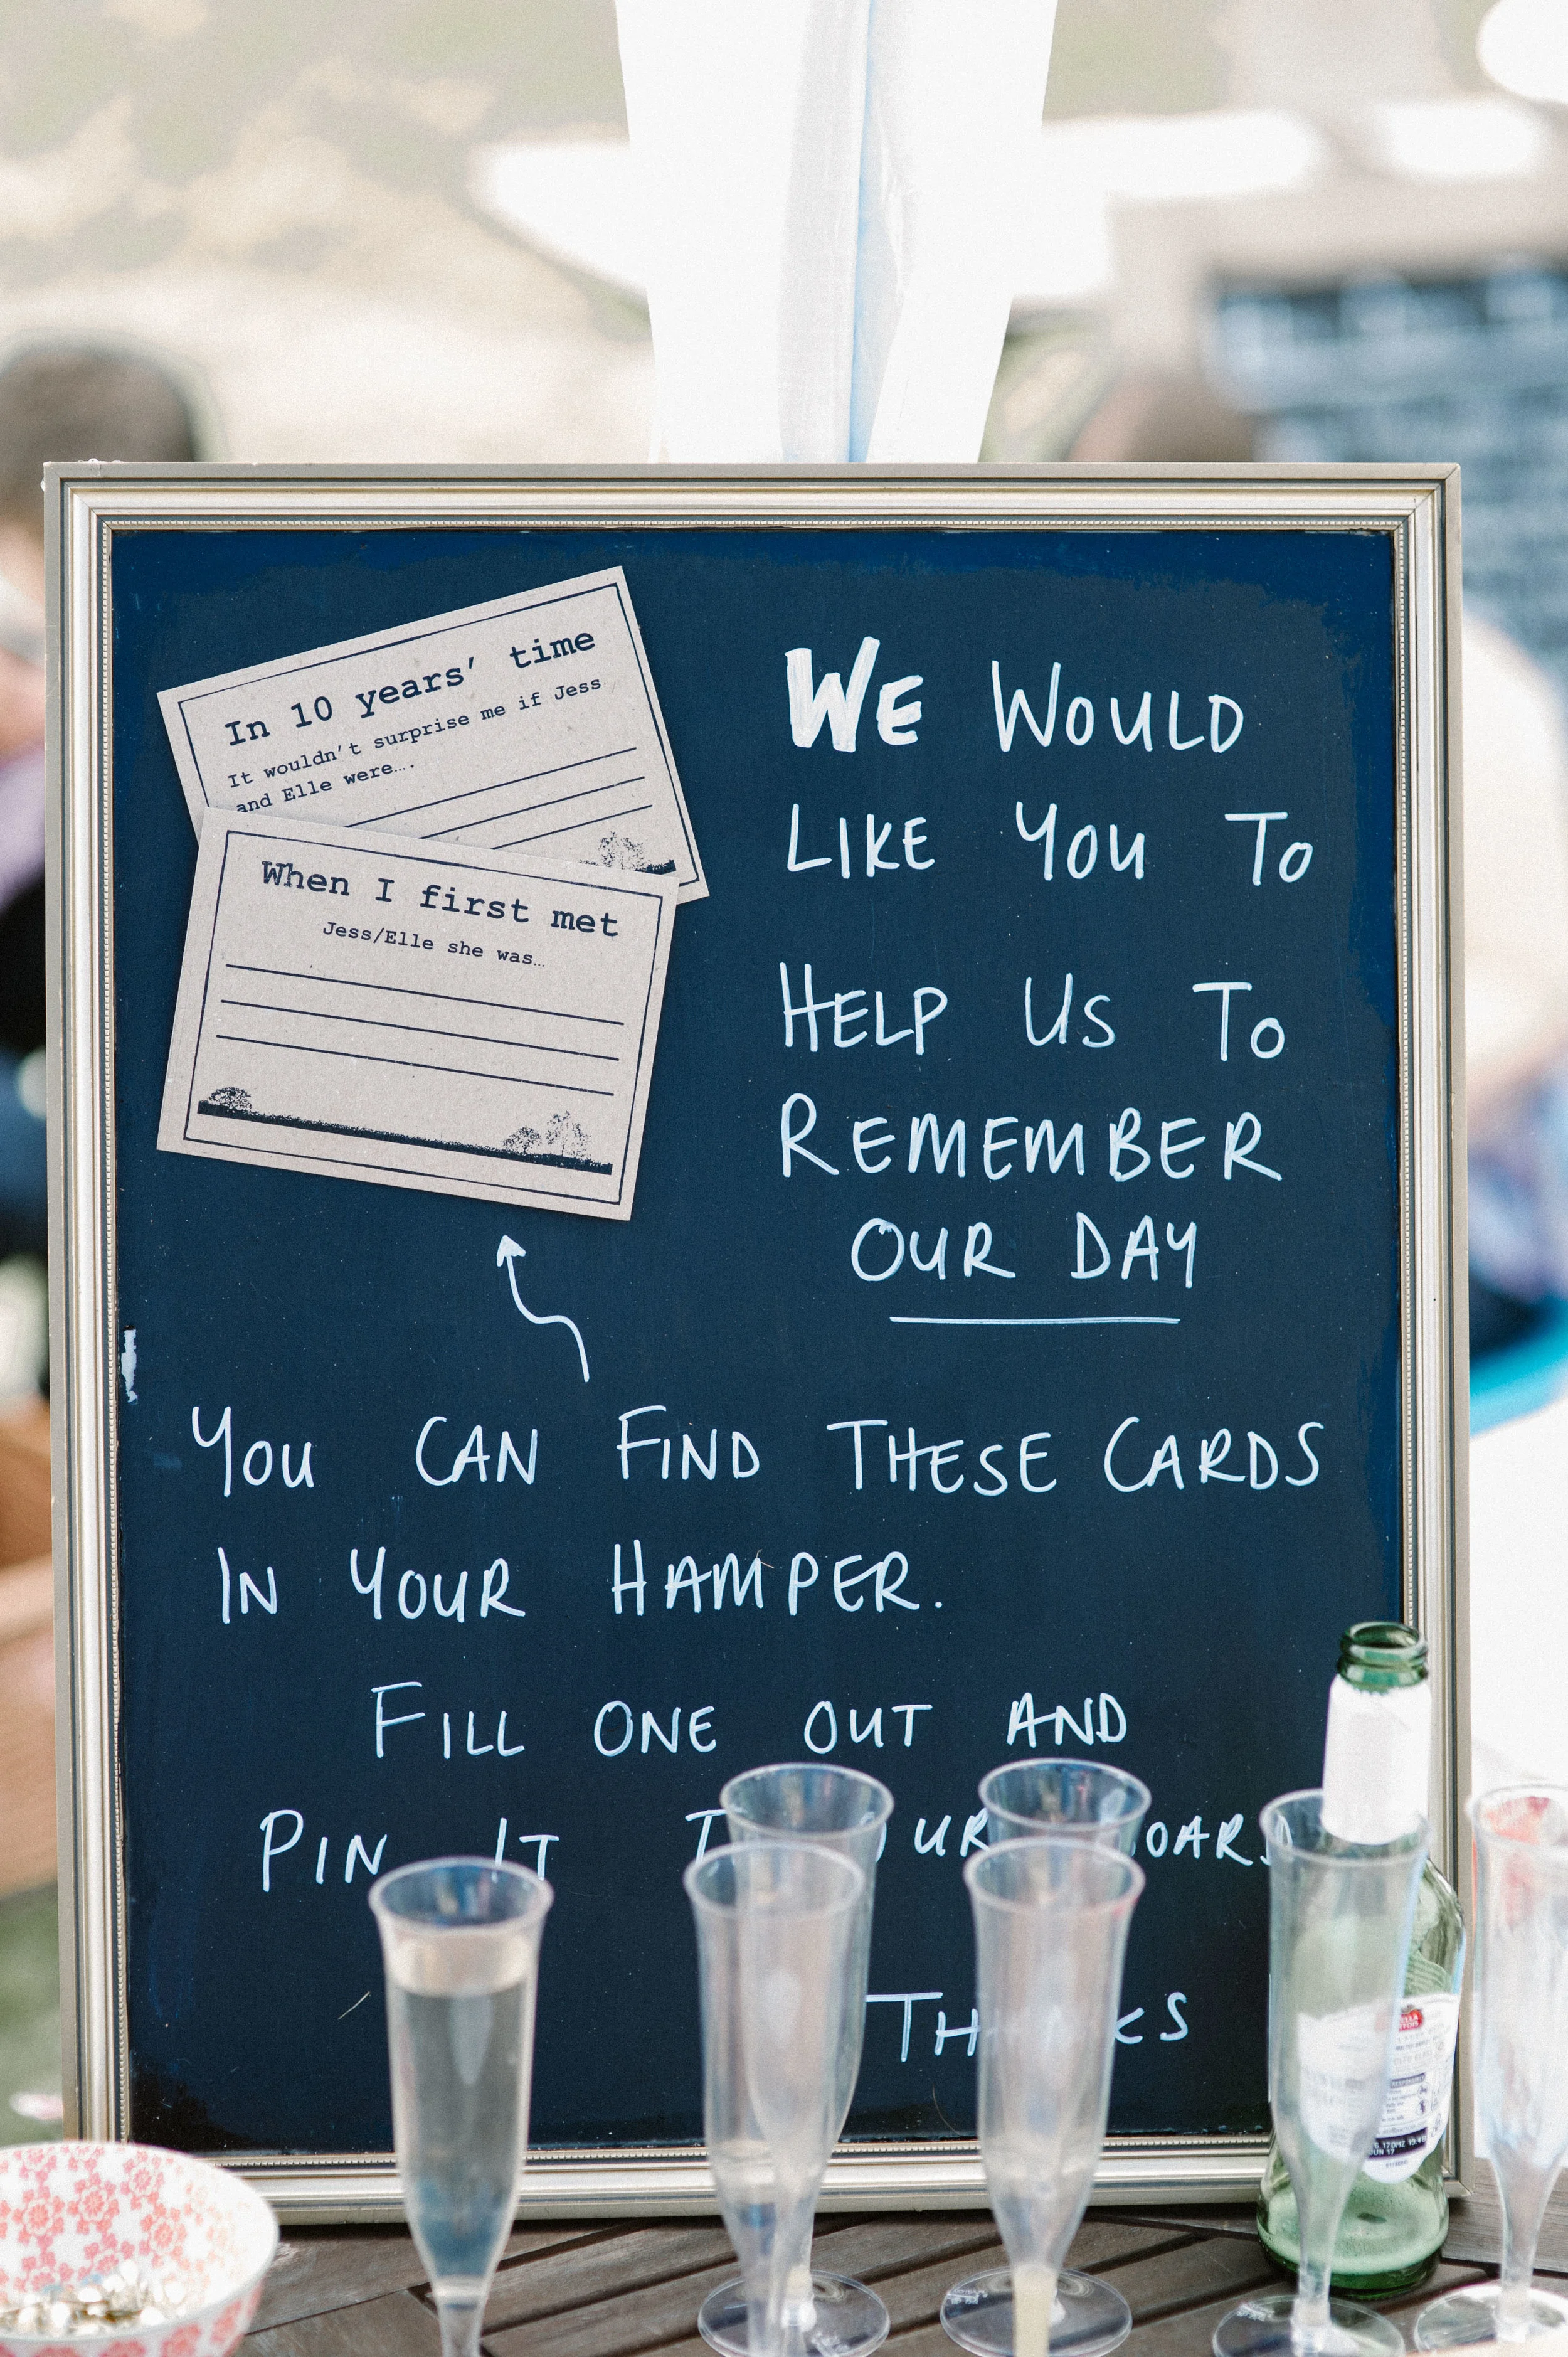 In 10 years' time
It wouldn't surprise me if Jess
and Elle were….
When I first met
Jess/Elle she was…
WE WOULD
LIKE YOU TO
HELP US TO
REMEMBER
OUR DAY
YOU CAN FIND THESE CARDS
IN YOUR HAMPER.
FILL ONE OUT AND
PIN IT